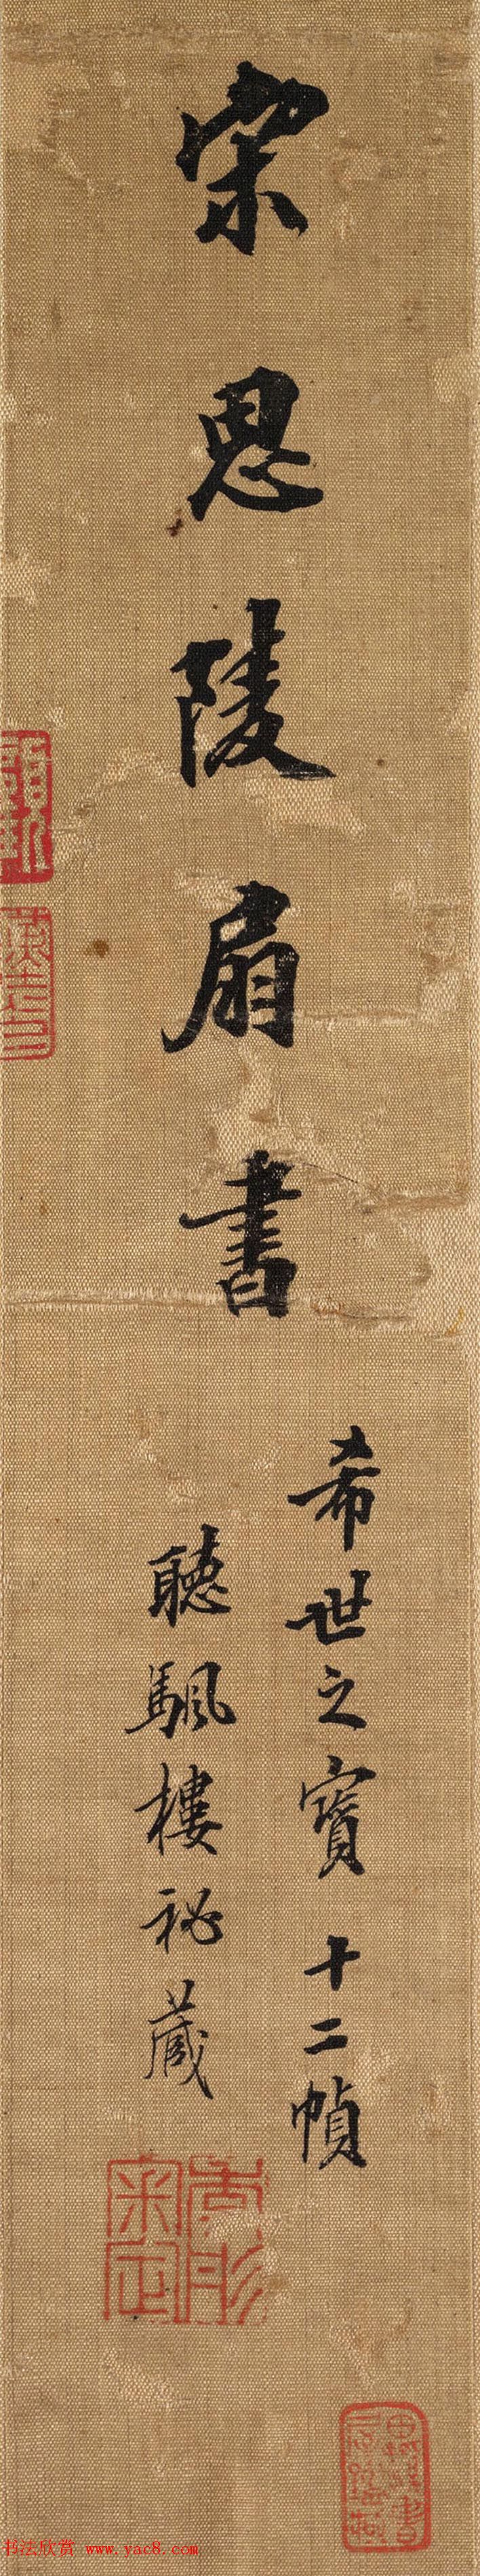 宋思陵扇書
希世之寶 十二幀
聽颿樓祕藏
书法欣赏 www.yac8.com